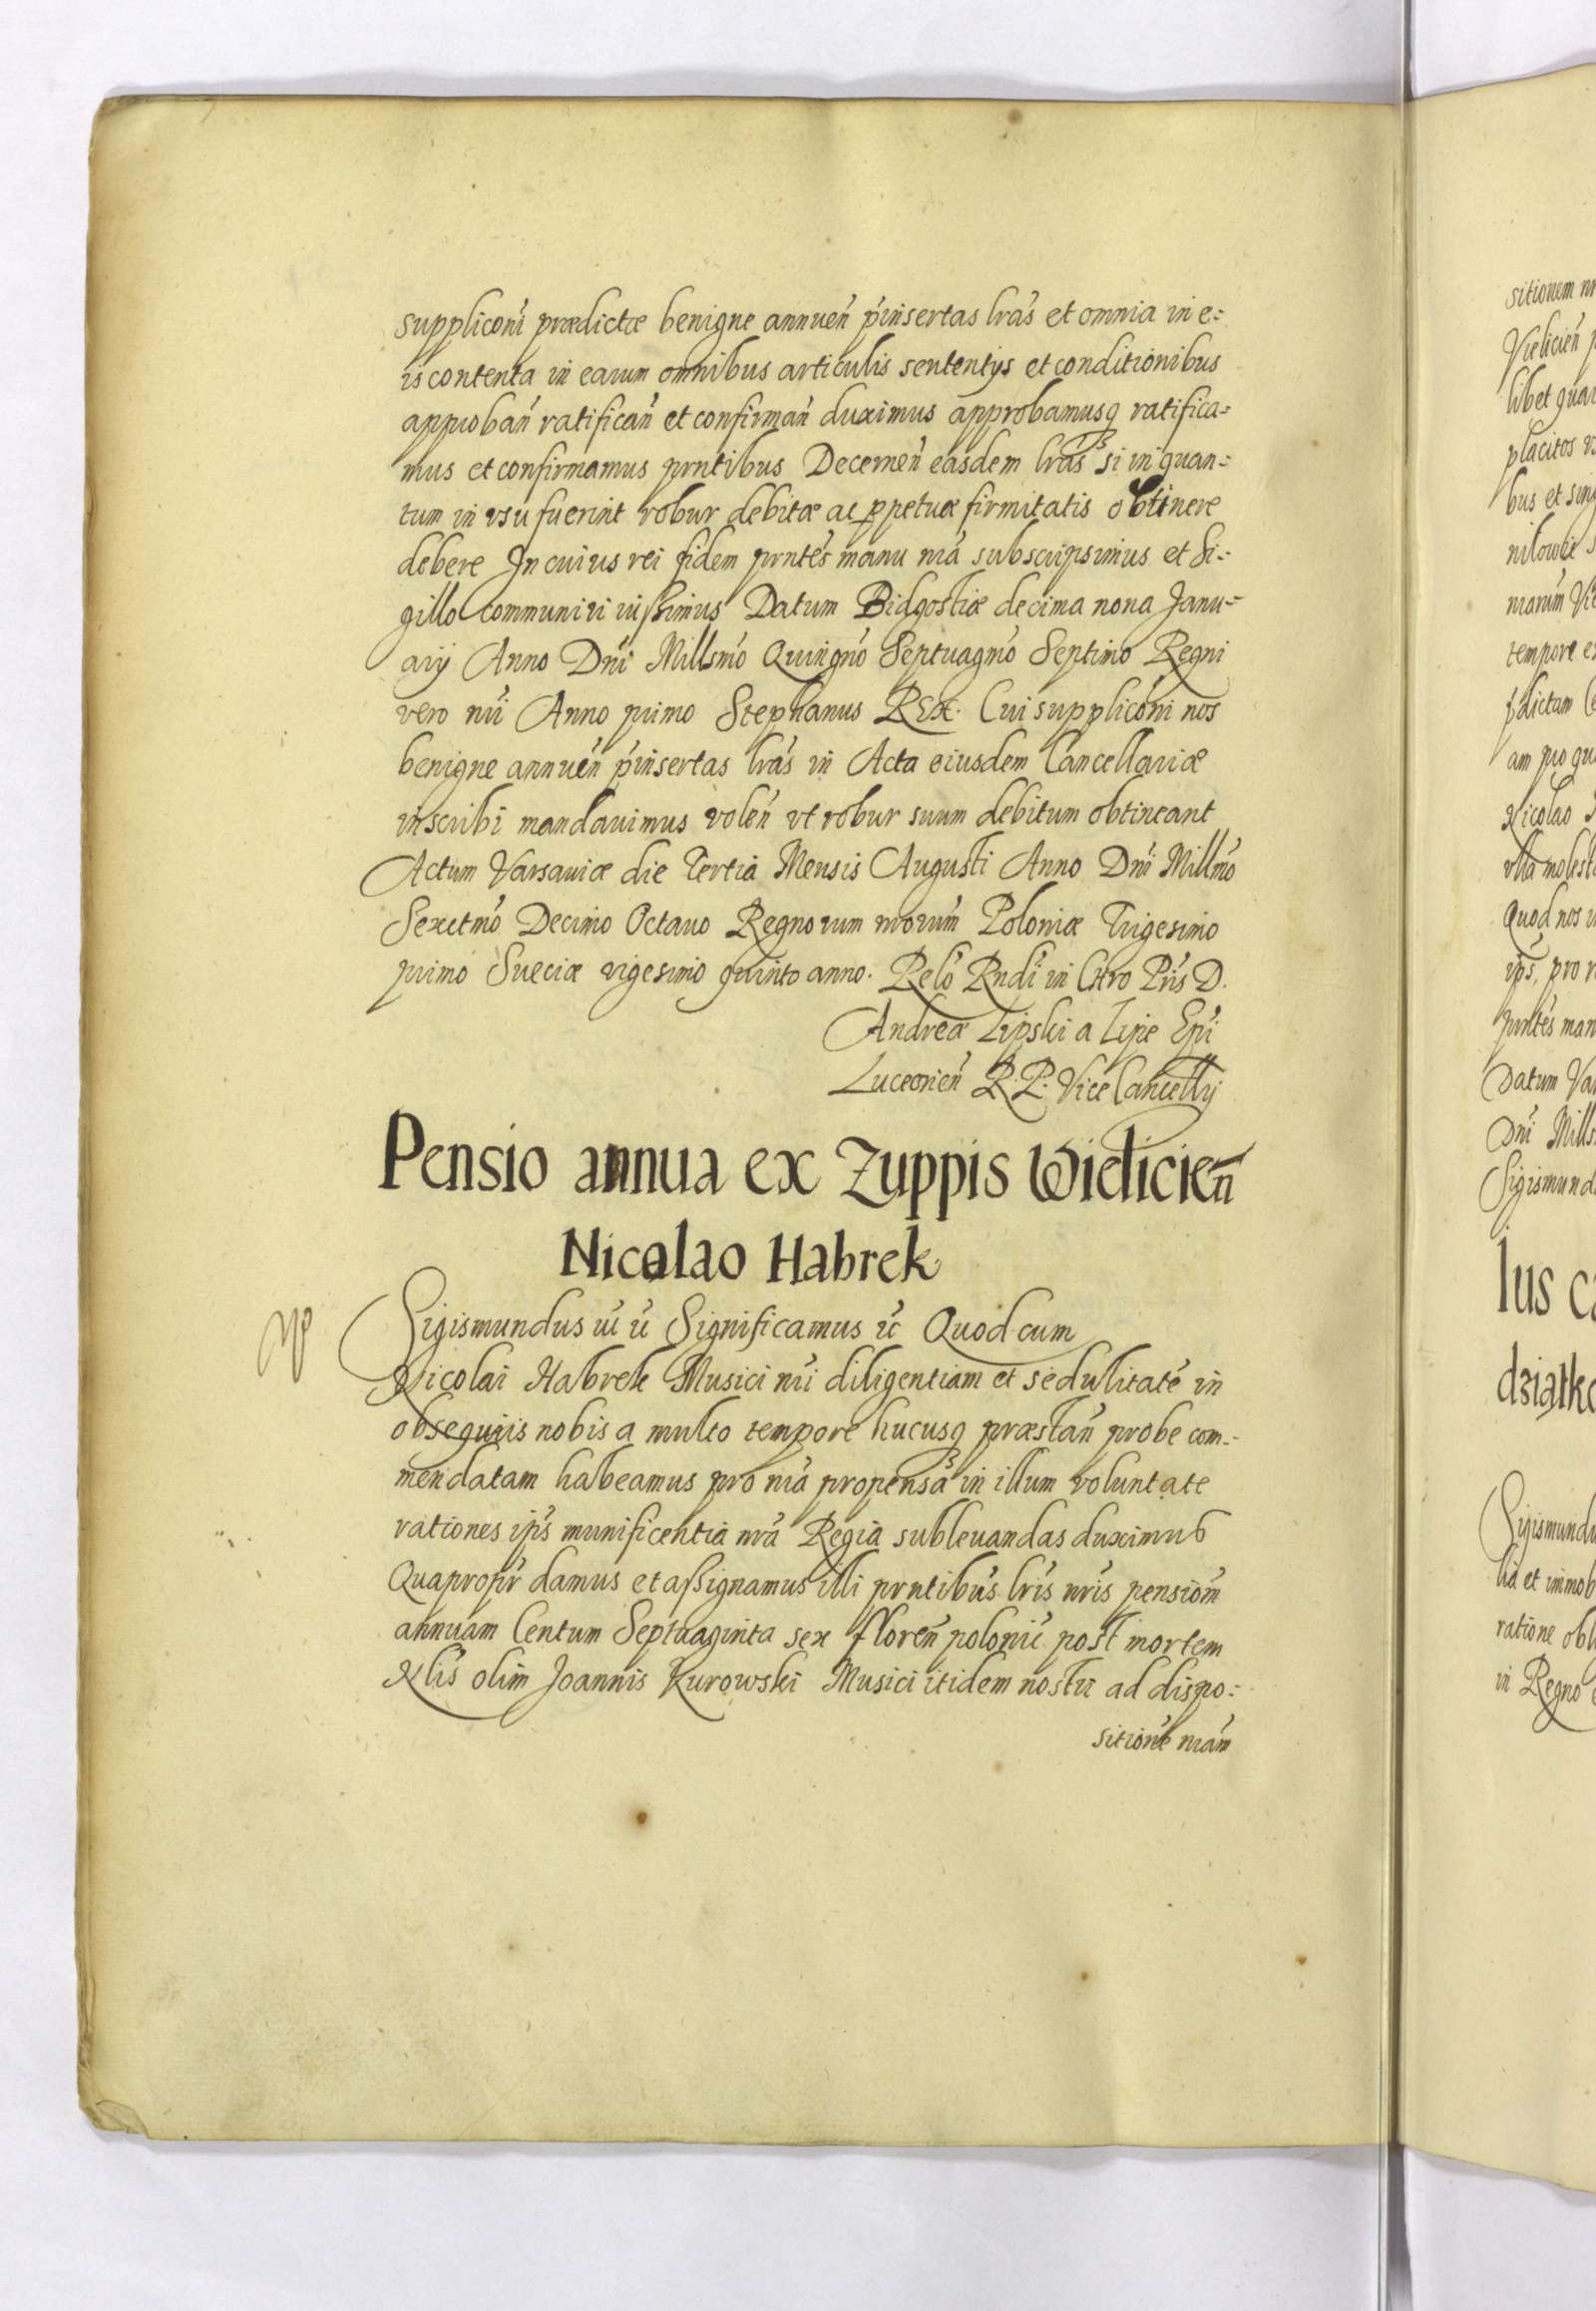 suppliconi prædictæ benigne annuen̄ p̄insertas lrās et omnia in e=
is contenta in earum omnibus articulis sententijs et conditionibus
approban̄ ratifican̄ et confirman̄ duximus approbamusq ratifica=
mus et confirmamus prntibus Decernen̄ easdem lrās si in quan=
tum in vsu fuerint robur debitæ ac ꝑpetuæ firmitatis obtinere
debere In cuius rei fidem prntes manu nrā subscripsimus et Si=
gillo communiri iussimus Datum Bidgostiæ decima nona Janu=
arij Anno Dni Millsmo Quingmo Septuagmo Septimo Regni
vero nri Anno primo Stephanus REX. Cui suppliconi nos
benigne annuen̄ p̄insertas lrās in Acta eiusdem Cancellariæ
inscribi mandauimus volen̄ vt robur suum debitum obtineant
Actum Varsauiæ die Tertia Mensis Augusti Anno Dni Millmo
Sexctmo Decimo Octauo Regnorum nrorum Poloniæ Trigesimo
primo Sueciæ vigesimo quinto anno. Relo Rndi in Chro Pris D.
Andreæ Lipski a Lipie Epi
Luceorien̄ R. P. Vice Cancellrij
Pensio annua ex Zuppis Wielicien̄
Nicolao Habrek
Sigismundus Significamus Quod cum
Nicolai Habrek Musici nri diligentiam et sedulitate in
obsequiis nobis a multo tempore hucusq præstan̄ probe com=
mendatam habeamus pro nra propensa in illum voluntate
rationes ips munificentia nra Regia subleuandas duximus
Quapropr damus et assignamus illi prntibus lris nris pensiom
annuam Centum Septuaginta sex floren̄ polonic post mortem
Nlis olim Joannis Kurowski Musici itidem nostri ad dispo=
sitione nram
sitionem
Vielicien̄
libet
placitos
bus et
tempore
dictam
am pro
Nicolao
vlla
Quod nos
ips, pro
prntes
Datum
Dni Mills
Sigismund
Ius
dziatko
Sigismund
lia et immob
ratione
in Regno